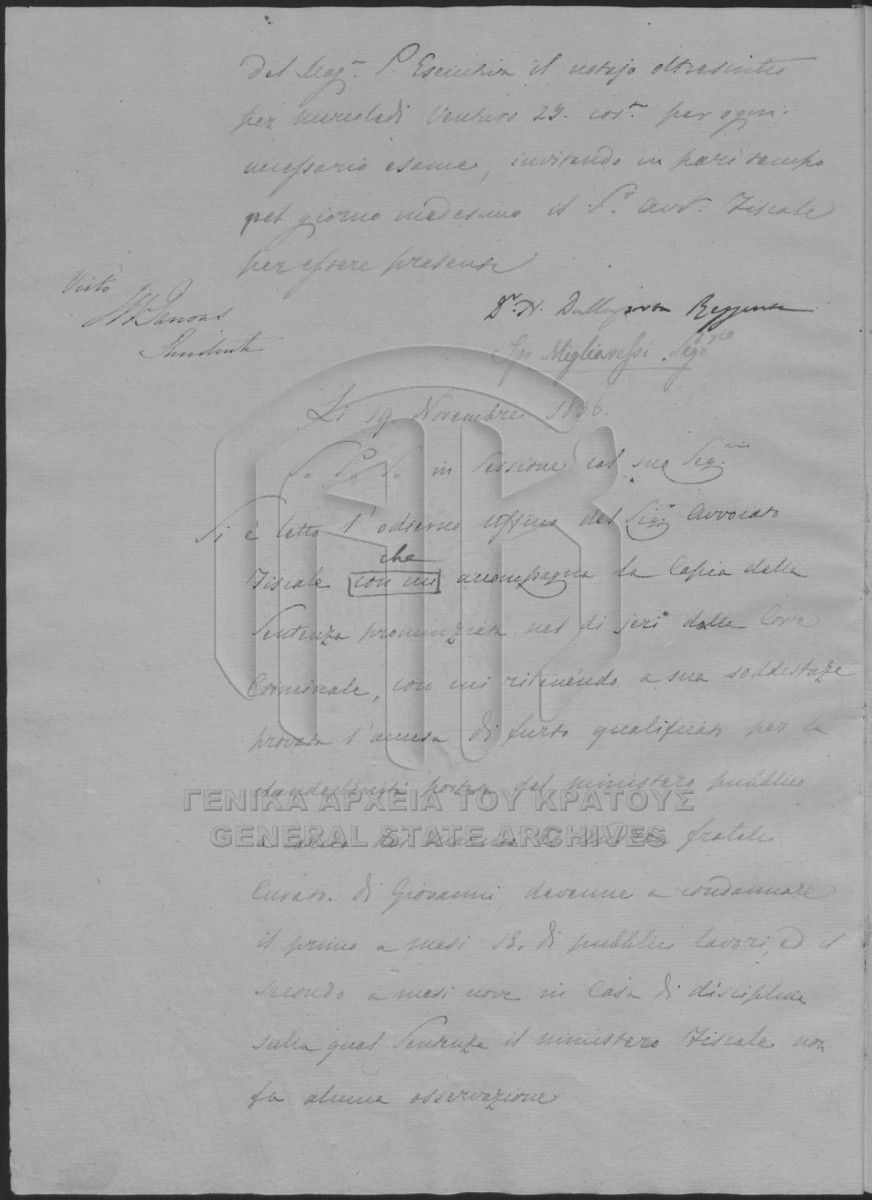 del Mag.º P. Esecutivo il notajo oltrescritto
per mercoledì venturo 23. cor.te per ogni
necessario esame, invitando in pari tempo
pel giorno medesimo il S.r Avv.to Fiscale
per essere presente
Visto
Presidente
D.r N. Reggente
Migliaressi Seg.rio
Li 19. Novembre 1836.
in Sessione col suo Seg.rio
Si è letto l'odierno Officio del Sig.r Avvocato
che
Fiscale con cui accompagna la Copia della
Sentenza pronunziata nel di jeri dalla Corte
Criminale, con cui ritenendo a sua soddisfaze
provata l'accusa di furto qualificato per la
portata dal ministero pubblico
ΓΕΝΙΚΑ ΑΡΧΕΙΑ ΤΟΥ ΚΡΑΤΟΥΣ
GENERAL STATE ARCHIVES
a carico fratelli
di Giovanni, devenne a condannare
il primo a mesi 18. di pubblici lavori, ed il
secondo a mesi nove in Casa di disciplina
sulla qual Sentenza il ministero Fiscale non
fa alcuna osservazione